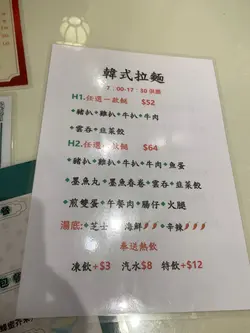 韓式拉麵
7:00-17:30 供應
H1.任選一款餸 $52
*豬扒*雞扒*牛扒*牛肉
*雲吞*韮菜餃
H2.任選兩款餸 $64
*豬扒*雞扒*牛扒*牛肉*魚蛋
*墨魚丸*墨魚春卷*雲吞*韮菜餃
*煎雙蛋*午餐肉*腸仔*火腿
湯底:*芝士*海鮮*辛辣
奉送熱飲
凍飲+$3 汽水$8 特飲+$12